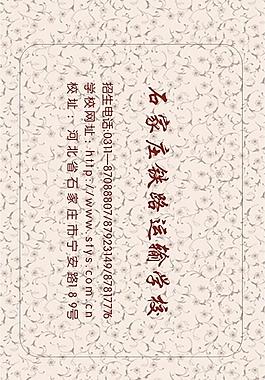 石家庄铁路运输学校
招生电话:0311—87088807/87923149/87817776
学校网址:http://www.stys.com.cn
校址:河北省石家庄市宁安路189号